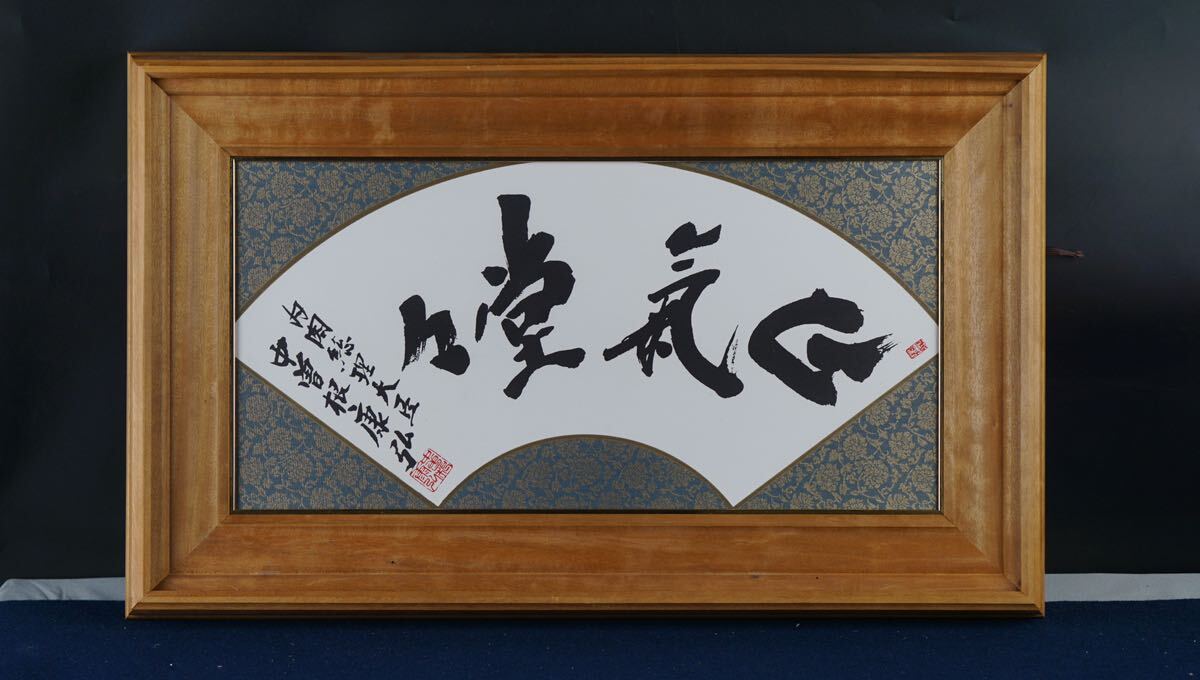 正氣堂々
内閣総理大臣
中曽根康弘